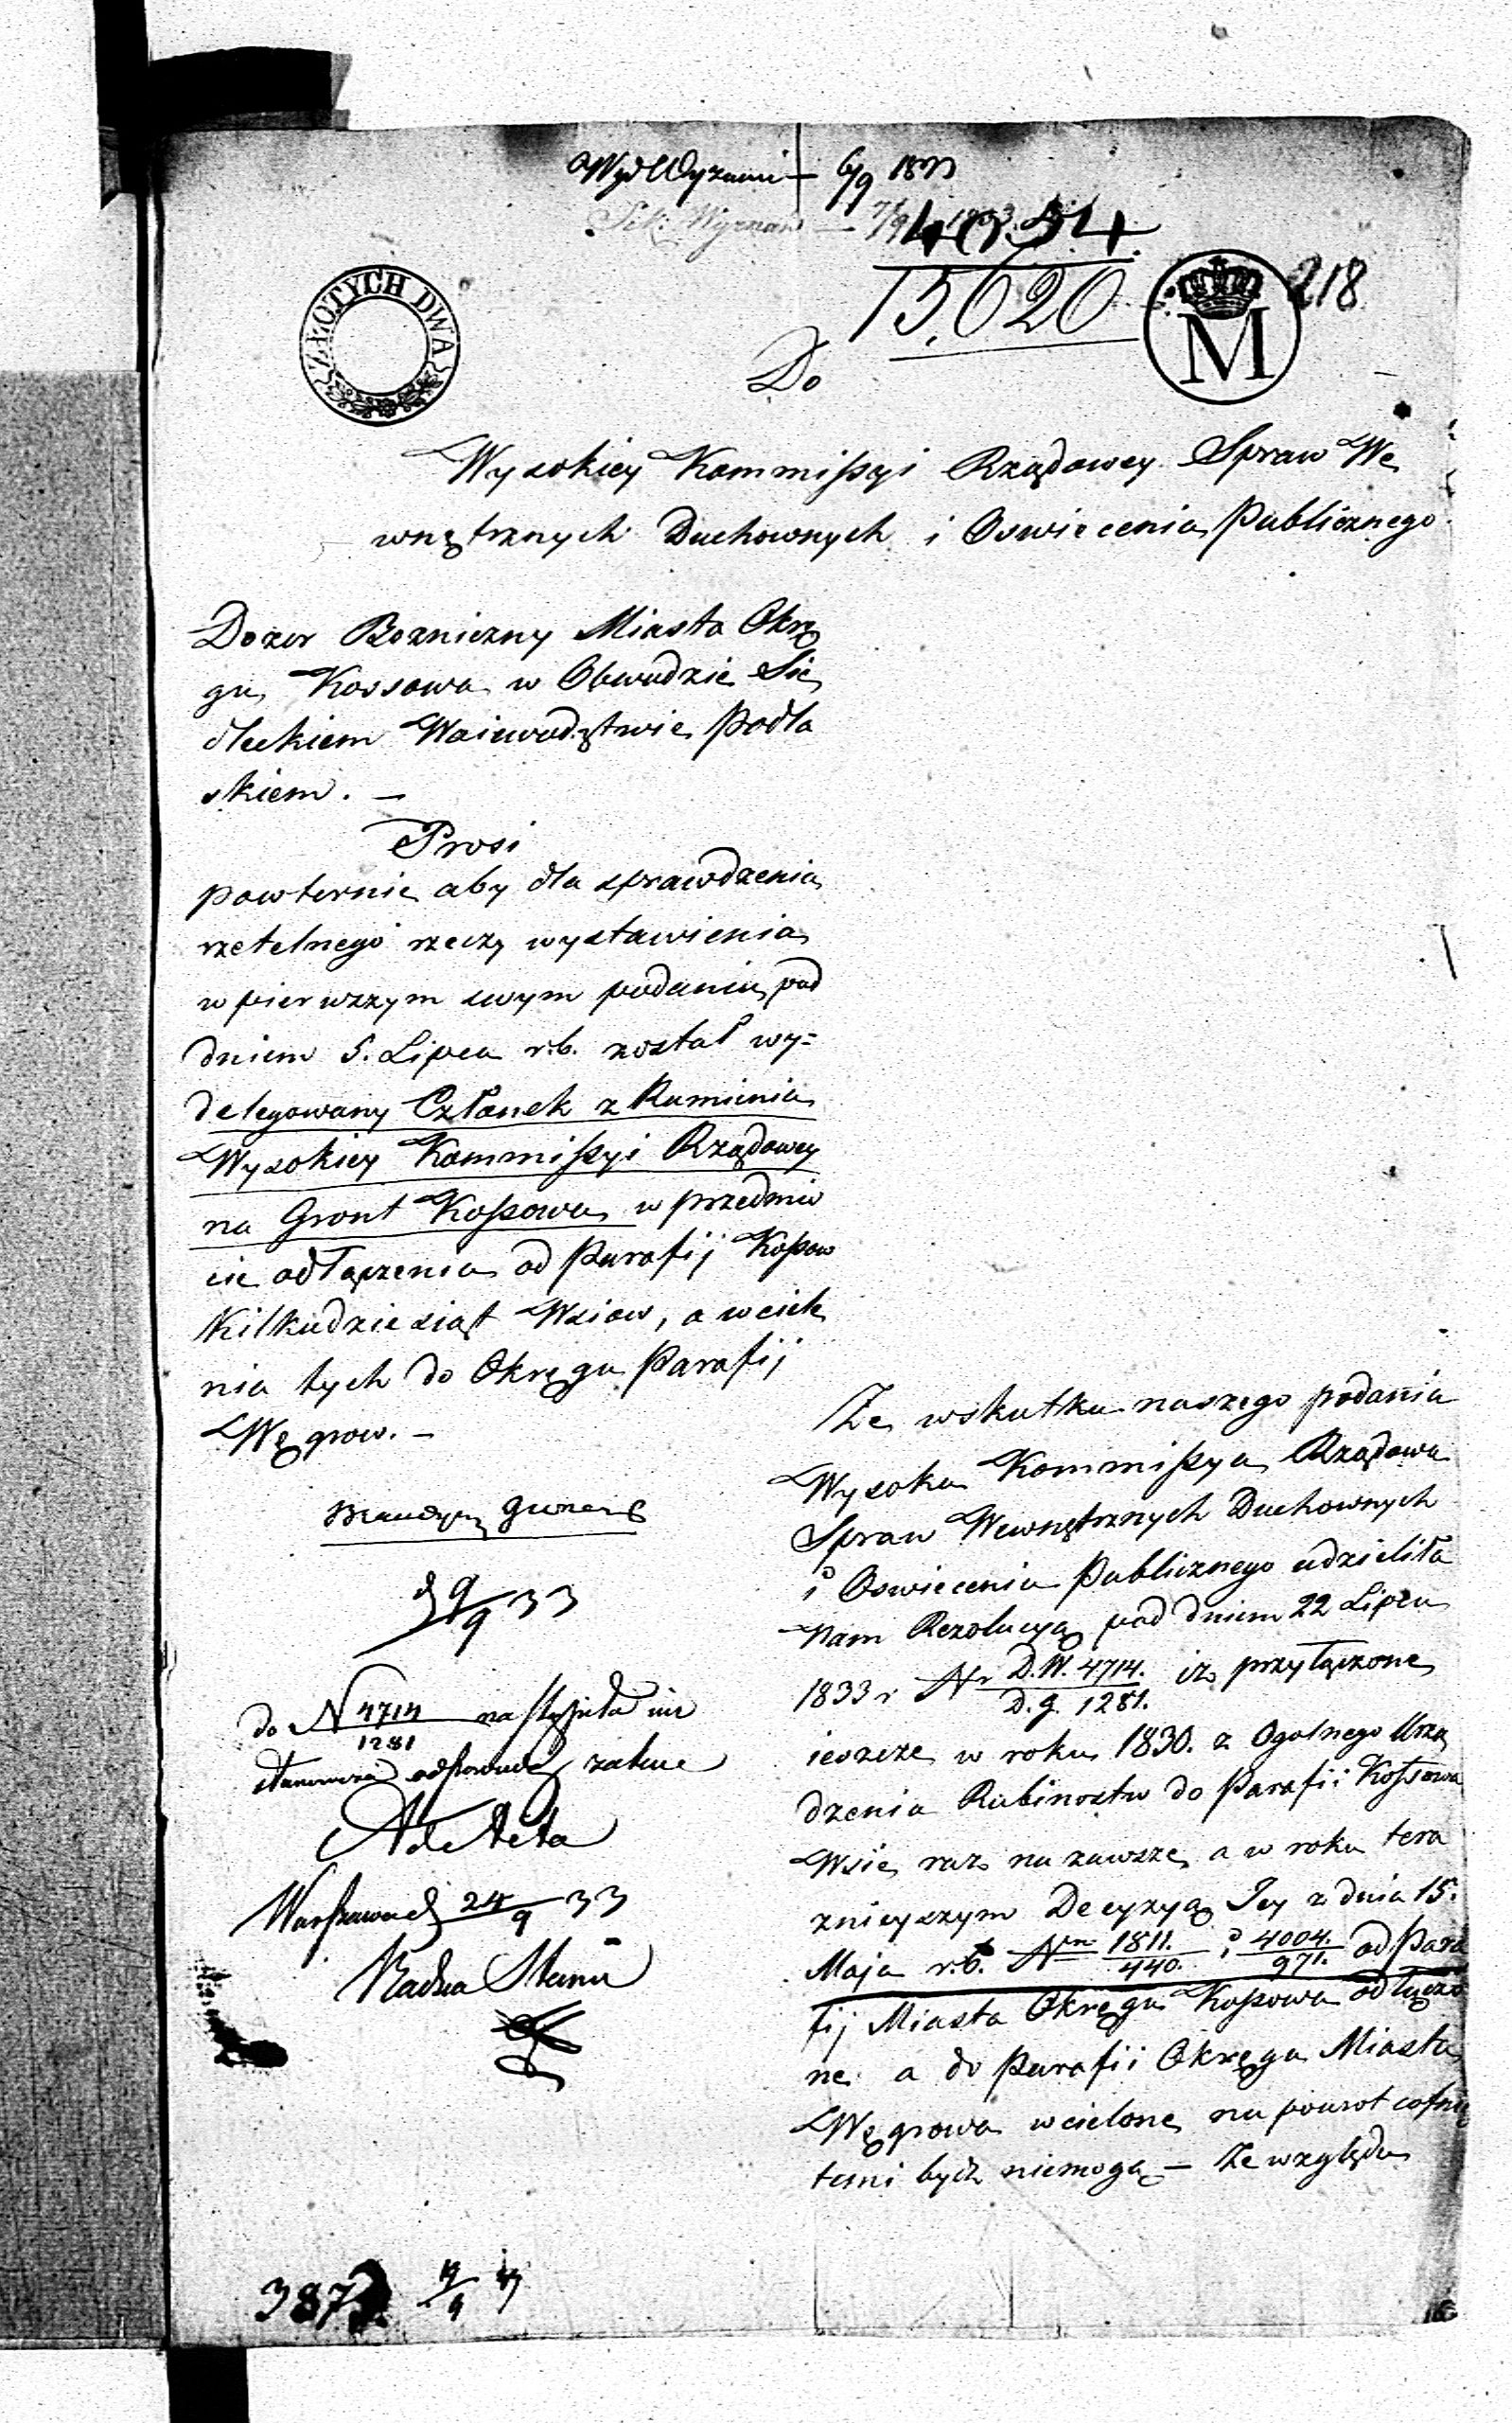 Wyd Wyznań — 6/9 1833
Sek: Wyznań — 7/9 1833
4054
15,620
218
ZŁOTYCH DWA
M
Do
Wysokiey Kommissyi Rządowey Spraw We
wnętrznych Duchownych i Oswiecenia Publicznego
Dozor Bozniczny Miasta Okrę
gu Kossowa w Obwudzie Sie
dleckiem Woiewudztwie Podla
skiem. —
Prosi
powternie aby dla sprawdzenia
rzetelnego rzeczy wystawienia
w pierwszym swym podaniu pod
dniem 5. Lipca r.b. został wy=
delegowany Członek z Ramienia
Wysokiey Kommissyi Rządowey
na Gront Kossowa w przedmio
cie odłączenia od Parafij Kossow
Kilkudziesiąt Wsiow, a wciele
nia tych do Okręgu Parafij
Węgrow. —
d 9/9 33
do N 4714/1281 nastąpiła już
stanowcza odpowiedź zatem
Ad Acta
Warszawa d 24/9 33
Radca Stanu
3873 11/9 33
Ze wskutku naszego podania
Wysoka Kommissya Rządowa
Spraw Wewnętrznych Duchownych
i Oswiecenia Publicznego udzieliła
Nam Rezolucyą pod dniem 22 Lipca
1833 r Nr D.W. 4714./D.g. 1281. iż przyłączone
ieszcze w roku 1830. z Ogolnego Urzą
dzenia Rabinostw do Parafii Kossowa
Wsie raz na zawsze a w roku tera
znieyszym Decyzyą Jey z dnia 15.
Maja r.b. Nro 1811./440. i 4004./971. od Para
fij Miasta Okręgu Kossowa odłączo
ne a do Parafii Okręgu Miasta
Węgrowa wcielone na powrot cofnię
temi bydź niemogą — Ze względu